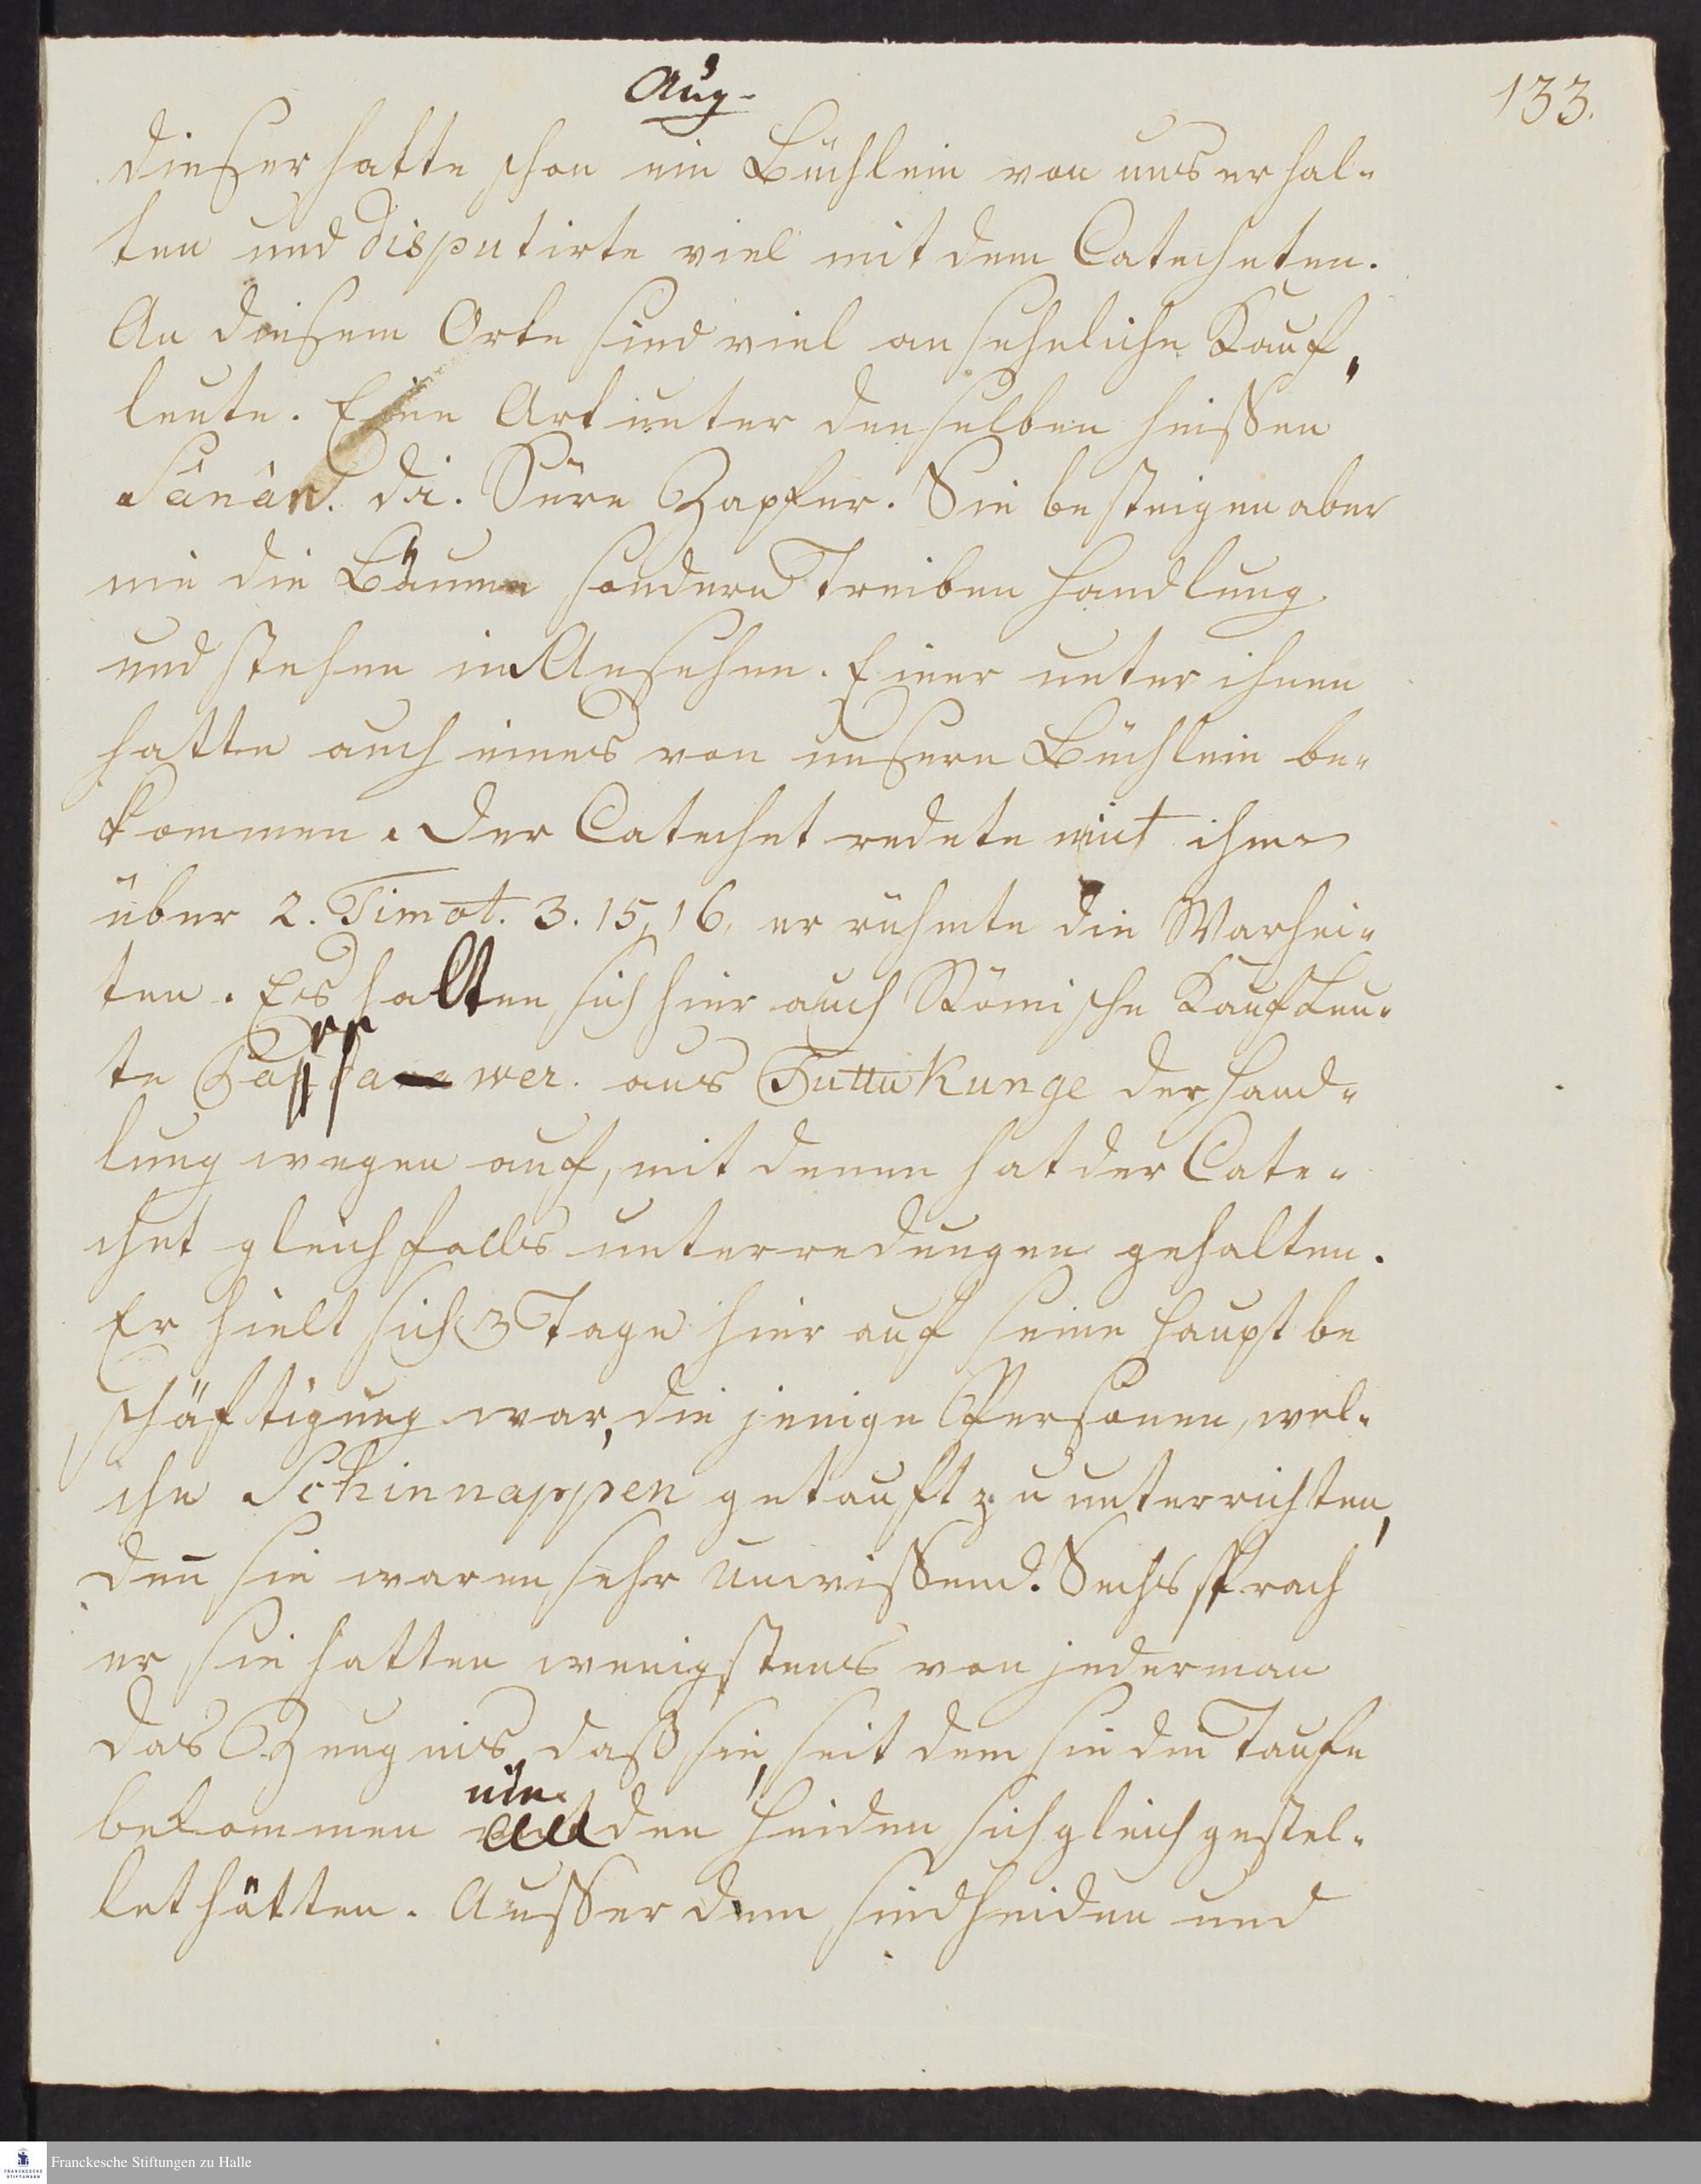 Aug.
133.
dieser hatte schon ein Büchlein von uns erhal-
ten und disputirte viel mit dem Catecheten.
An diesem Orte sind viel ansehnliche Kauf-
leute. Eine Art unter denselben heissen
Sânâr. d. i. Süre Zapfer. Sie besteigen aber
nie die Bäume sondern Treiben Handlung
und stehen in Ansehen. Einer unter ihnen
hatte auch eines von unsern Büchlein be-
kommen. Der Catechet redete mit ihm
über 2. Timot. 3. 15, 16. er rühmte die Warhei-
ten. Es halten sich hier auch Römische Kaufleu-
te wer. aus Tuttukunge der Hand-
lung wegen auf, mit denen hat der Cate-
chet gleichfalls unterredungen gehalten.
Er hielt sich 3 Tage hier auf seine Haupt be
schäftigung war, die jenige Personen, wel-
che Schinnappen getauft zu unterrichten,
deñ sie waren sehr unwissend. Sechs sprach
er sie hatten wenigstens von jederman
das Zeugnis, daß sie, seit dem sie die Taufe
bekommen nie den Heiden sich gleich gestel-
let hätten. Ausser dem sind Heiden und
Franckesche Stiftungen zu Halle